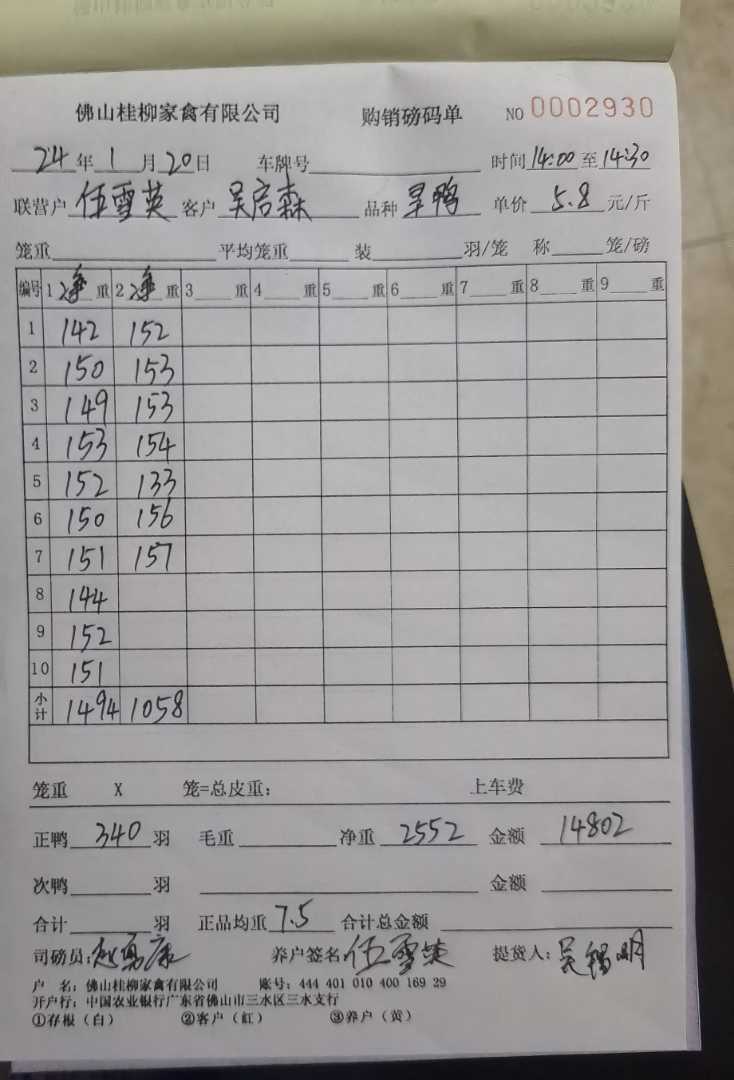 佛山桂柳家禽有限公司 购销磅码单 NO 0002930
24年1月20日 车牌号 时间14:00至14:30
联营户 伍雪英 客户 吴启森 品种 旱鸭 单价 5.8 元/斤
笼重 平均笼重 装 羽/笼 称 笼/磅
编号 1净重 2净重 3 重 4 重 5 重 6 重 7 重 8 重 9 重
1 142 152
2 150 153
3 149 153
4 153 154
5 152 133
6 150 156
7 151 157
8 144
9 152
10 151
小计 1494 1058
笼重 X 笼=总皮重: 上车费
正鸭 340 羽 毛重 净重 2552 金额 14802
次鸭 羽 金额
合计 羽 正品均重 7.5 合计总金额
司磅员:赵勇康 养户签名:伍雪英 提货人:吴锡明
户 名:佛山桂柳家禽有限公司 账号:444 401 010 400 169 29
开户行:中国农业银行广东省佛山市三水区三水支行
①存根(白) ②客户(红) ③养户(黄)